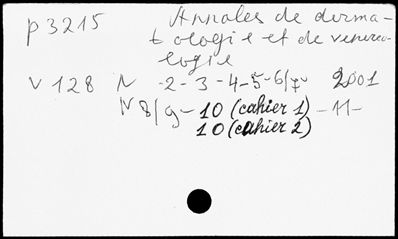 P 3215 Annales de derma-
tologie et de venereo
logie
V 128 N -2-3-4-5-6/7- 2001
N 8/9-10 (cahier 1)-11-
10 (cahier 2)